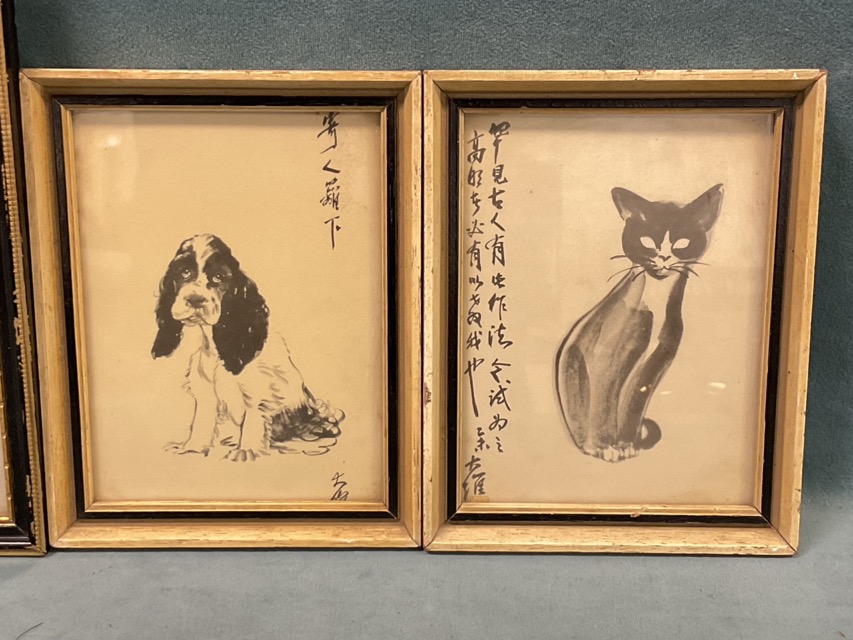 寄人籬下
罕見古人有此作法今試為之
高明者必有以教我也
大維